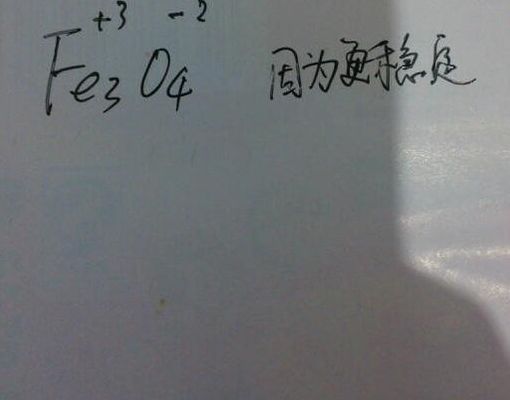 +3 -2
Fe3O4 因为更稳定